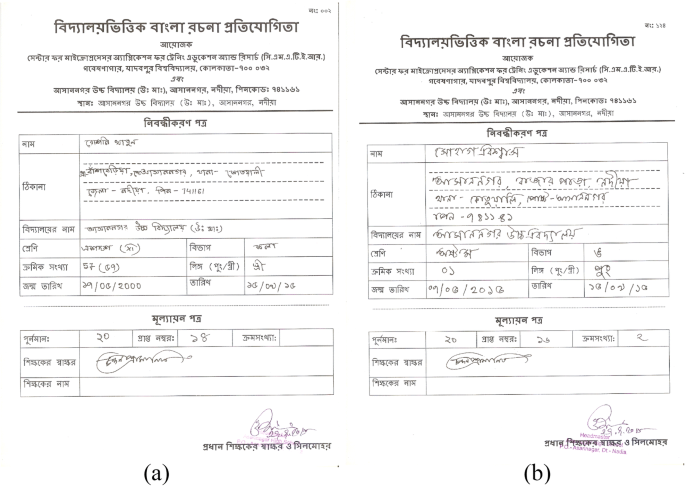 নং: ০০২
বিদ্যালয়ভিত্তিক বাংলা রচনা প্রতিযোগিতা
আয়োজক
সেন্টার ফর মাইক্রোপ্রসেসর অ্যাপ্লিকেশন ফর ট্রেনিং এডুকেশন অ্যান্ড রিসার্চ (সি.এম.এ.টি.ই.আর.)
গবেষণাগার, যাদবপুর বিশ্ববিদ্যালয়, কোলকাতা-৭০০ ০৩২
এবং
আসাননগর উচ্চ বিদ্যালয় (উঃ মাঃ), আসাননগর, নদীয়া, পিনকোডঃ ৭৪১১৬১
স্থানঃ আসাননগর উচ্চ বিদ্যালয় (উঃ মাঃ), আসাননগর, নদীয়া
নিবন্ধীকরণ পত্র
নাম
ঠিকানা
জেলা - নদীয়া, পিন - 741161
বিদ্যালয়ের নাম আসাননগর উচ্চ বিদ্যালয় (উঃ মাঃ)
শ্রেণি একাদশ বিভাগ কলা
ক্রমিক সংখ্যা 57 (৫৭) লিঙ্গ (পুং/স্ত্রী) স্ত্রী
জন্ম তারিখ তারিখ
মূল্যায়ন পত্র
পূর্নমানঃ ২০ প্রাপ্ত নম্বরঃ ১৪ ক্রমসংখ্যা:
শিক্ষকের স্বাক্ষর
শিক্ষকের নাম
প্রধান শিক্ষকের স্বাক্ষর ও সিলমোহর
(a)
নং: ১২৪
বিদ্যালয়ভিত্তিক বাংলা রচনা প্রতিযোগিতা
আয়োজক
সেন্টার ফর মাইক্রোপ্রসেসর অ্যাপ্লিকেশন ফর ট্রেনিং এডুকেশন অ্যান্ড রিসার্চ (সি.এম.এ.টি.ই.আর.)
গবেষণাগার, যাদবপুর বিশ্ববিদ্যালয়, কোলকাতা-৭০০ ০৩২
এবং
আসাননগর উচ্চ বিদ্যালয় (উঃ মাঃ), আসাননগর, নদীয়া, পিনকোডঃ ৭৪১১৬১
স্থানঃ আসাননগর উচ্চ বিদ্যালয় (উঃ মাঃ), আসাননগর, নদীয়া
নিবন্ধীকরণ পত্র
নাম সোহাগ বিশ্বাস
ঠিকানা
আসাননগর, বাজার পাড়া, নদীয়া
থানা - কোতয়ালি, পোষ্ট - আসাননগর
পিন - ৭৪১১৬১
বিদ্যালয়ের নাম আসাননগর উচ্চ বিদ্যালয়
শ্রেণি অষ্টম বিভাগ
ক্রমিক সংখ্যা ০১ লিঙ্গ (পুং/স্ত্রী) পুং
জন্ম তারিখ তারিখ
মূল্যায়ন পত্র
পূর্নমানঃ ২০ প্রাপ্ত নম্বরঃ ১৬ ক্রমসংখ্যা: ২
শিক্ষকের স্বাক্ষর
শিক্ষকের নাম
Headmaster
প্রধান শিক্ষকের স্বাক্ষর ও সিলমোহর
(b)